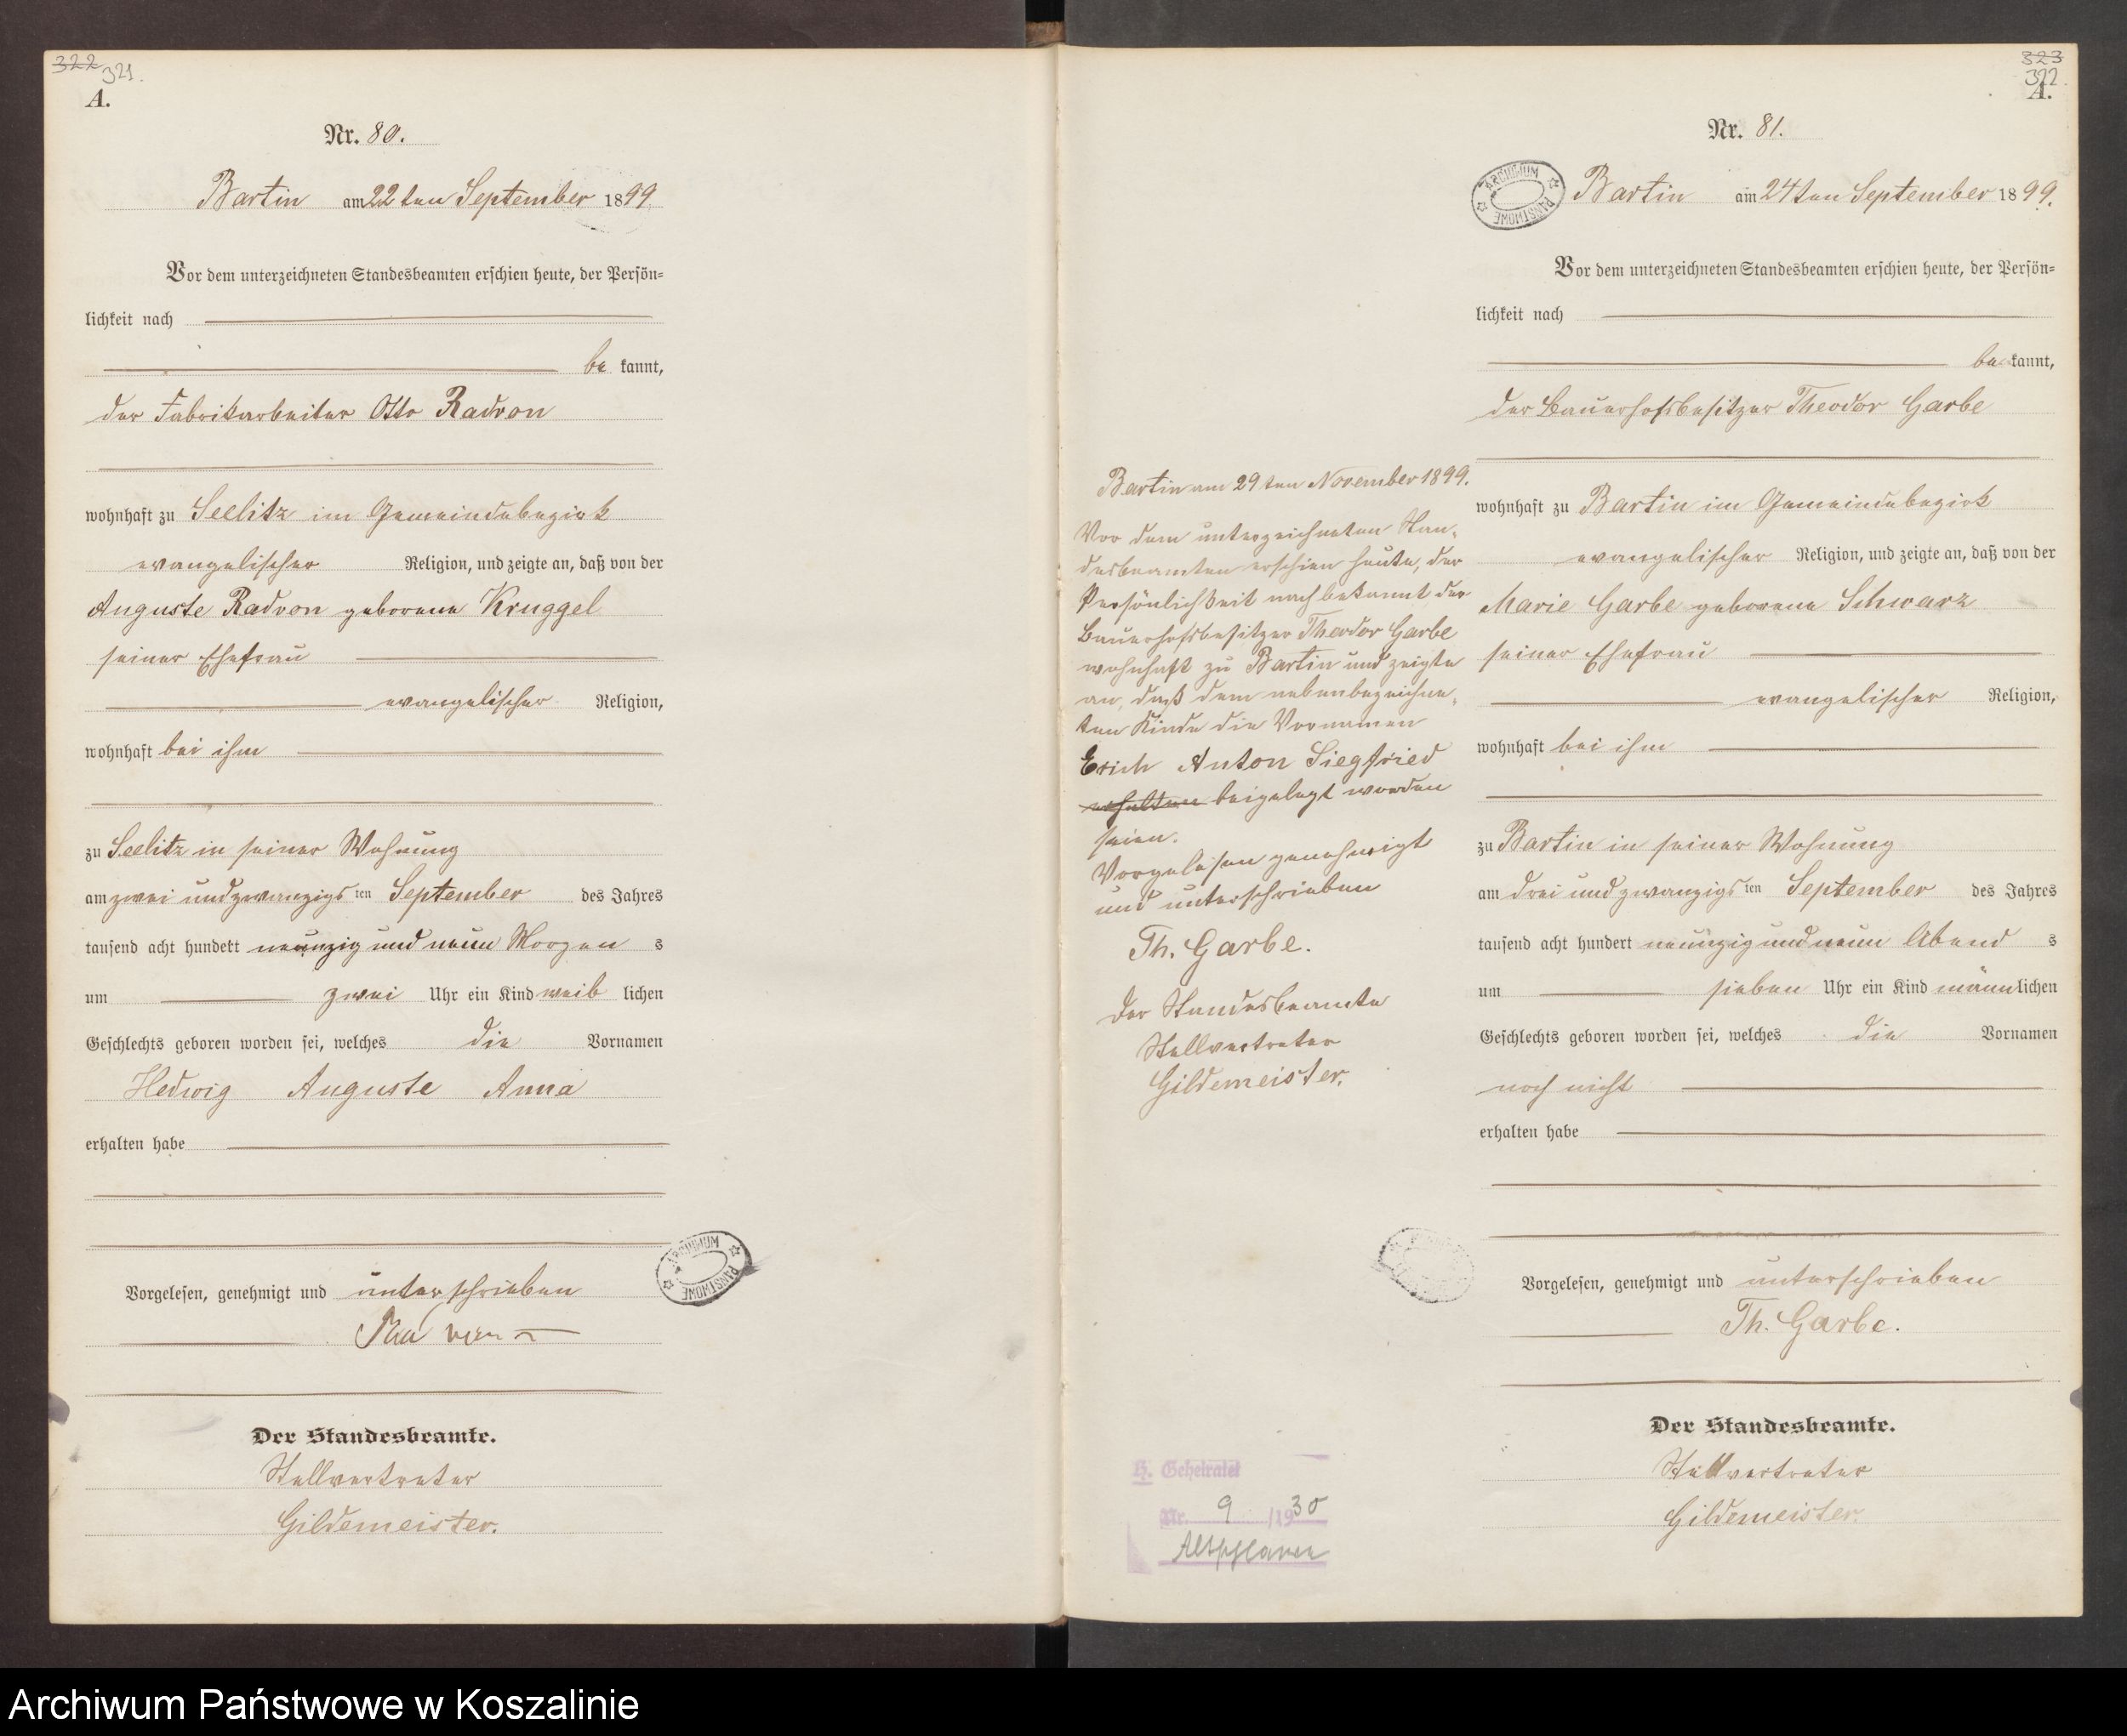 322 321.
A.
Nr. 80.
Bartin am 22ten September 1899
Vor dem unterzeichneten Standesbeamten erschien heute, der Persön=
lichkeit nach
be kannt,
der Fabrikarbeiter Otto Radvon
wohnhaft zu Seelitz im Gemeindebezirk
evangelischer Religion, und zeigte an, daß von der
Auguste Radvon geborene Kruggel
seiner Ehefrau
evangelischer Religion,
wohnhaft bei ihm
zu Seelitz in seiner Wohnung
am zwei und zwanzigsten September des Jahres
tausend acht hundert neunzig und neun Morgens
um zwei Uhr ein Kind weiblichen
Geschlechts geboren worden sei, welches die Vornamen
Hedwig Auguste Anna
erhalten habe
Vorgelesen, genehmigt und unterschrieben
Der Standesbeamte.
Stellvertreter
Gildemeister.
ARCHIWUM PAŃSTWOWE
323
322
A.
Nr. 81.
ARCHIWUM PAŃSTWOWE
Bartin am 24ten September 1899.
Vor dem unterzeichneten Standesbeamten erschien heute, der Persön=
lichkeit nach
be kannt,
der Bauerhofsbesitzer Theodor Garbe
wohnhaft zu Bartin im Gemeindebezirk
evangelischer Religion, und zeigte an, daß von der
Marie Garbe geborene Schwarz
seiner Ehefrau
evangelischer Religion,
wohnhaft bei ihm
zu Bartin in seiner Wohnung
am drei und zwanzigsten September des Jahres
tausend acht hundert neunzig und neun Abends
um sieben Uhr ein Kind männlichen
Geschlechts geboren worden sei, welches die Vornamen
noch nicht
erhalten habe
Vorgelesen, genehmigt und unterschrieben
Th. Garbe.
Der Standesbeamte.
Stellvertreter
Gildemeister.
Bartin am 29ten November 1899.
Vor dem unterzeichneten Stan-
desbeamten erschien heute, der
Persönlichkeit nach bekannt der
Bauerhofsbesitzer Theodor Garbe
wohnhaft zu Bartin und zeigte
an, daß dem nebenbezeichne-
ten Kinde die Vornamen
Erich Anton Siegfried
erhalten beigelegt worden
seien.
Vorgelesen genehmigt
und unterschrieben
Th. Garbe.
Der Standesbeamte
Stellvertreter
Gildemeister.
H. Geheiratet
Nr. 9 /1930
Archiwum Państwowe w Koszalinie